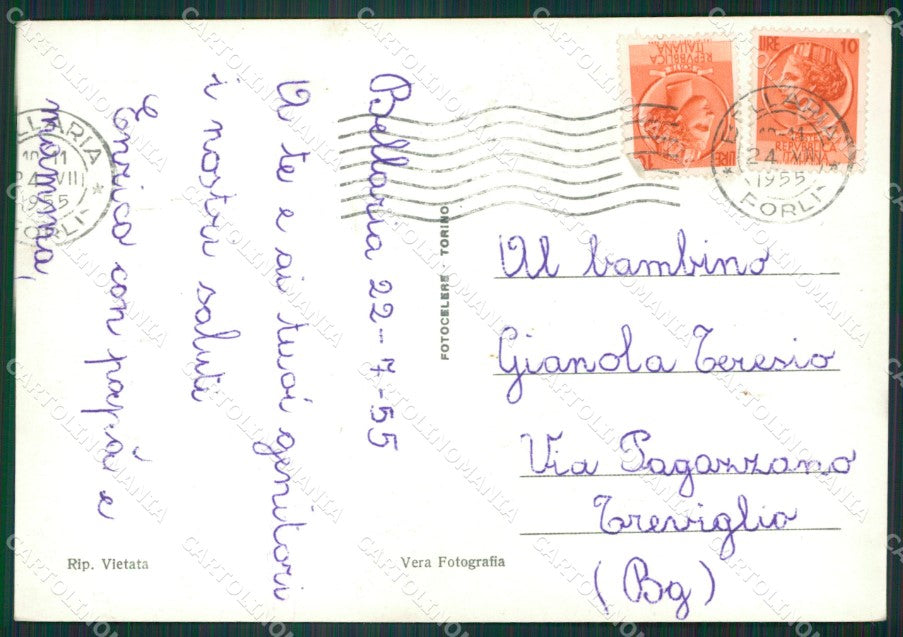 Bellaria 22-7-55
A te e ai tuoi genitori
i nostri saluti
Enrico con papà e
mamma,
Al bambino
Gianola Teresio
Via Pagazzano
Treviglio
(Bg)
FOTOCELERE - TORINO
Rip. Vietata
Vera Fotografia
LIRE 10
REPUBBLICA
ITALIANA
POSTE
REPUBBLICA
ITALIANA
LIRE 10
BELLARIA
24
1955
* FORLI *
ELLARIA
24 VII
1955
FORLI *
CARTOLINOMANIA